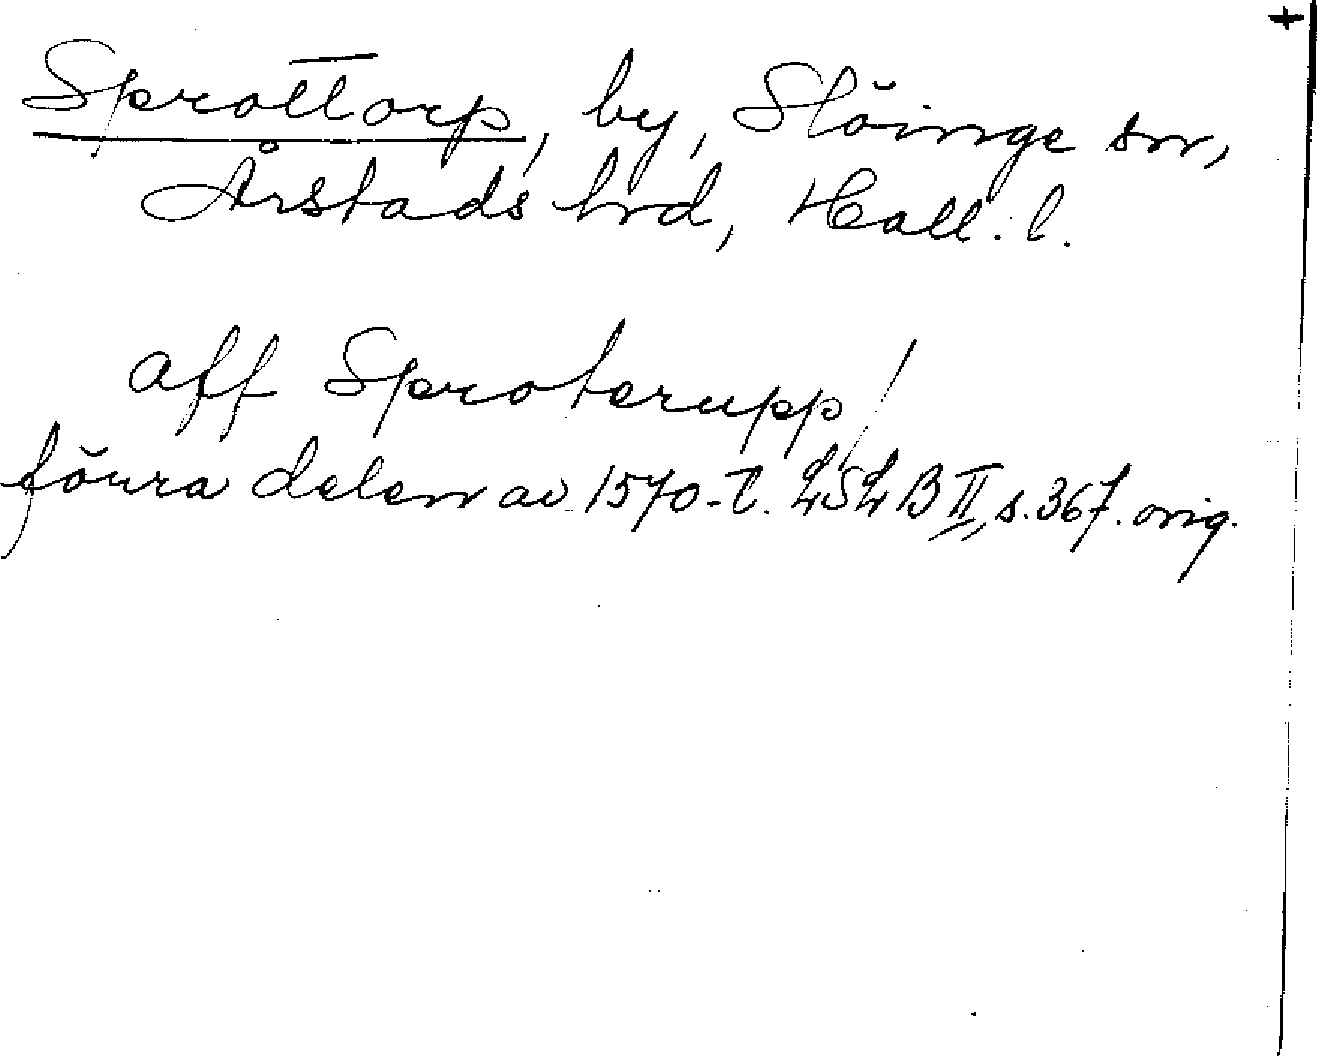 Sprottorp, by, Slöinge sn,
Årstads hrd, Hall. l.
aff Sproterupp /
förra delen av 1570-t. LSLB II, s. 367. orig.